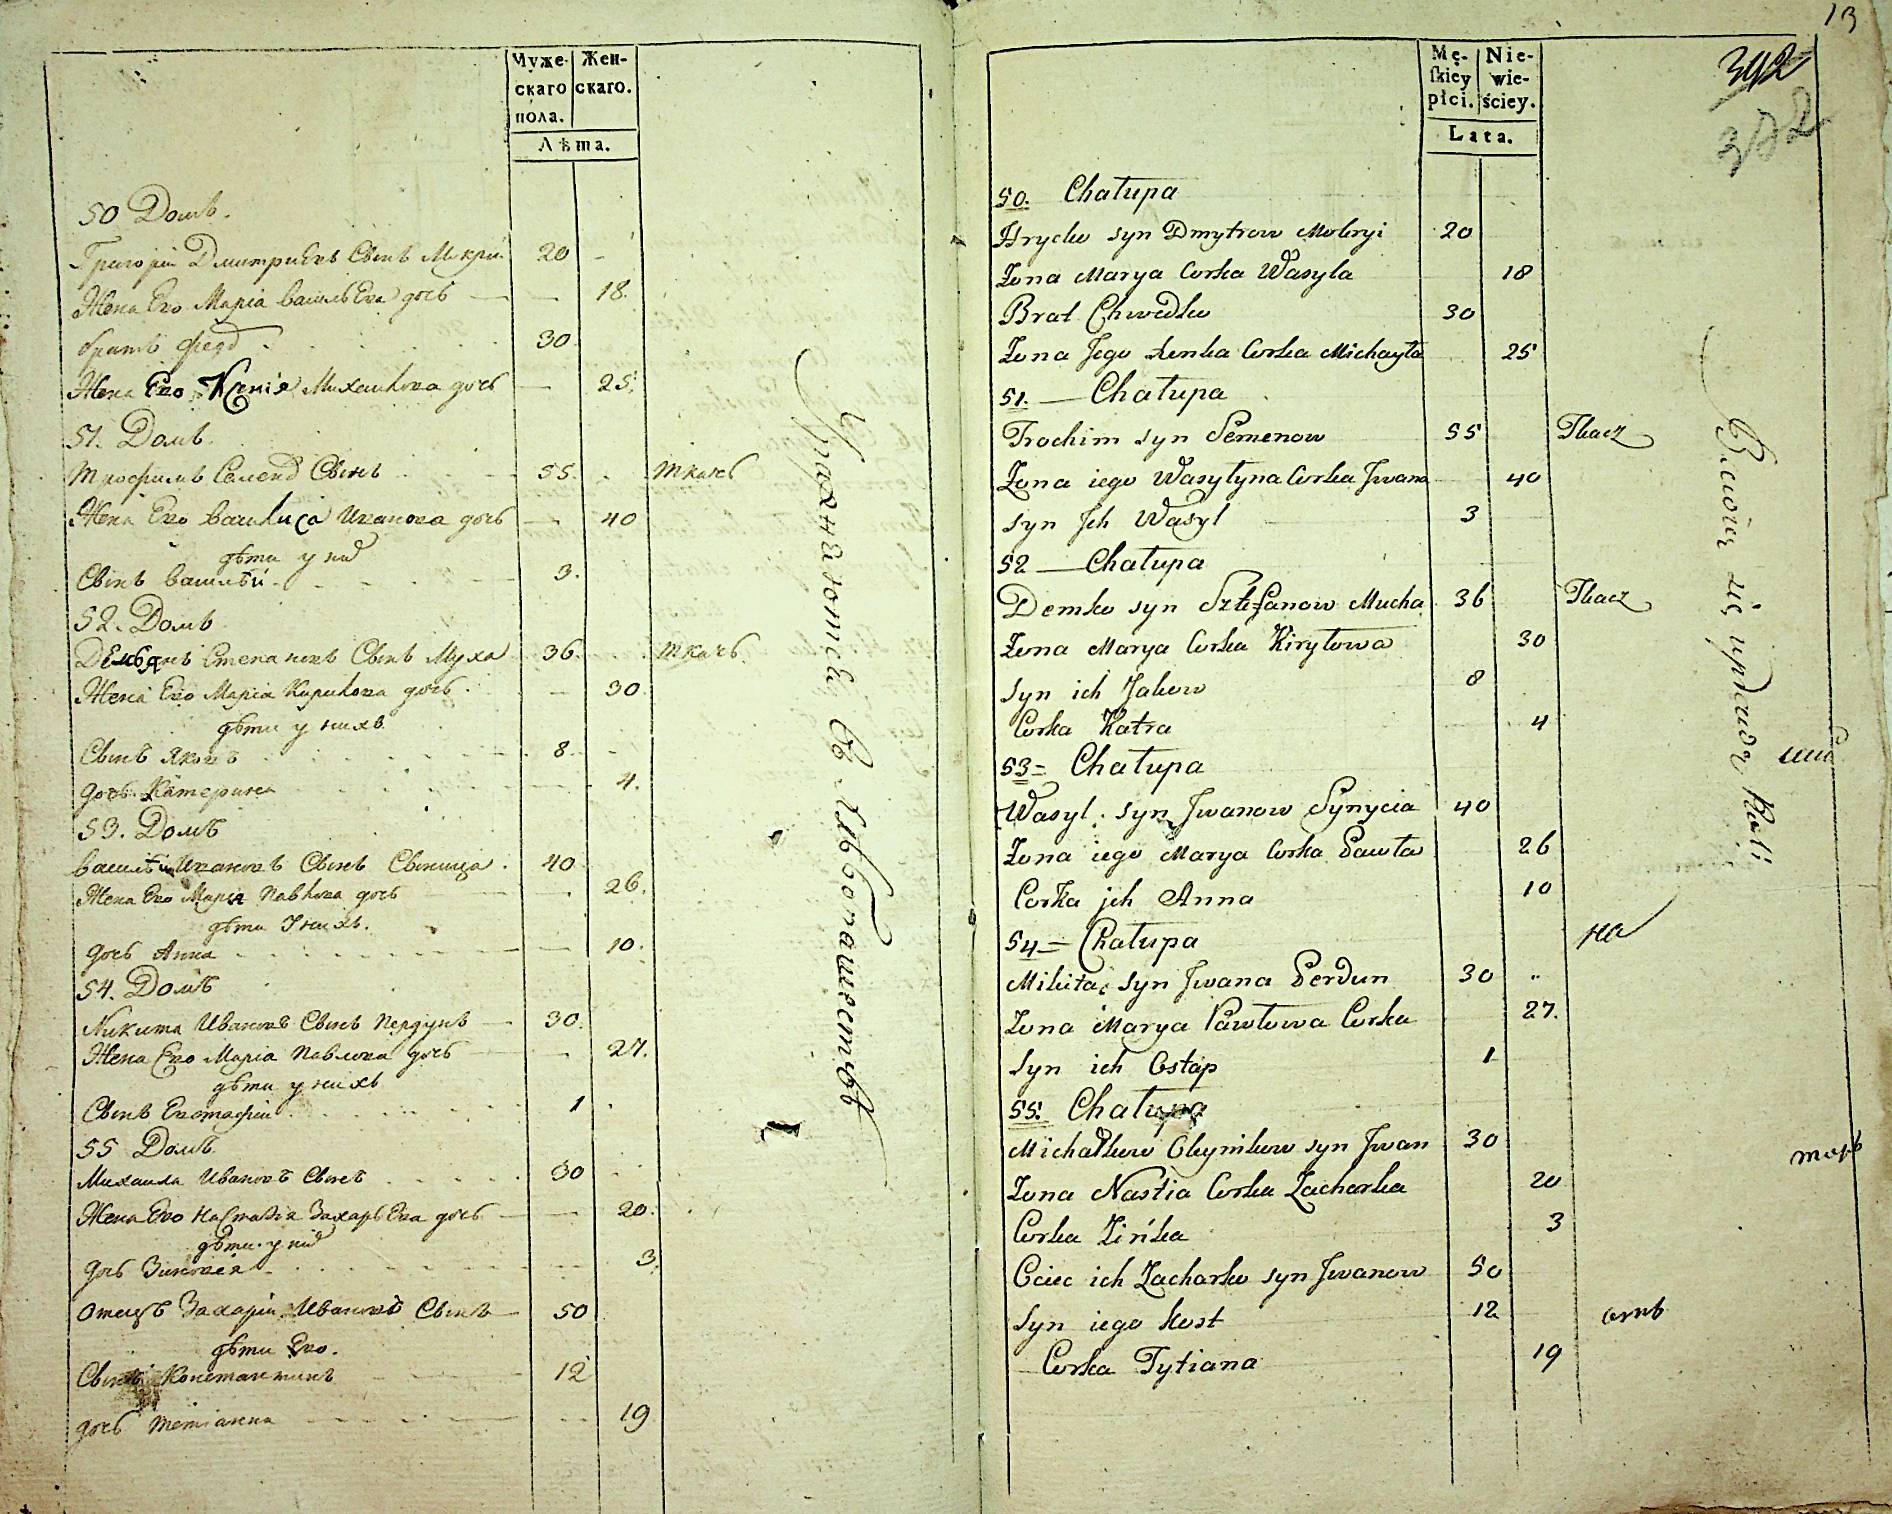 Мужескаго пола. Женскаго.
Лѣта.
50 Домъ.
Григорій Дмитріевъ Сынъ Мокрій 20 -
Жена Его Марія Васильева дочь — 18.
братъ Федъ 30
Жена Его Ксенія Михайлова дочь — 25.
51. Домъ.
Трофимъ Семенов Сынъ 55. Ткачъ
Жена Его Василиса Иванова дочь — 40
дѣти у них
Сынъ Василій 3.
52. Домъ
Демьянъ Степановъ Сынъ Муха 36. Ткачъ.
Жена Его Марія Кирилова дочь — 30
дѣти у нихъ
Сынъ Яковъ 8. -
дочь Катерина 4.
53. Домъ
Василій Ивановъ Сынъ Синица 40
Жена Его Марія Павлова дочь 26.
дѣти У нихъ.
дочь Анна — 10.
54. Домъ
Никита Ивановъ Сынъ Пердунъ — 30.
Жена Его Марія Павлова дочь 27.
дѣти у нихъ
Сынъ Евстафій 1
55 Домъ
Михайла Ивановъ Сынъ 30
Жена Его Настасія Захарьева дочь — 20.
дѣти у них
дочь Зиновія 3.
отецъ Захарій Ивановъ Сынъ — 50
дѣти Его.
Сынъ Константинъ 12
дочь Тетіанна 19
Упражняются въ хлѣбопашествѣ
13
392
Męskiey płci. Niewieściey.
Lata.
50. Chałupa
Hrycko syn Dmytrow Mokryi 20
Zona Marya Corka Wasyla 18
Brat Chwedko 30
Zona Jego Corka Michayła 25
51. — Chałupa
Trochim syn Semenow 55 Tkacz
Zona iego Wasylyna Corka Jwana 40
syn Jch Wasyl 3
52 — Chałupa
Demko syn Sztefanow Mucha 36 Tkacz
Zona Marya Corka Kiryłowa 30
Syn ich Jakow 8
Corka Katra 4
53 = Chałupa
Wasyl syn Jwanow Synycia 40
Zona iego Marya Corka Pawła 26
Corka jch Anna 10
54 = Chałupa
на
Mikita syn Jwana Perdun 30 "
Zona Marya Pawłowa Corka 27.
Syn ich Ostap 1
55. Chałupa
Michałko Oleynikow syn Jwan 30
Zona Nastia Corka Zacharka 20
Corka Zińka 3
Ociec ich Zacharko syn Jwanow 50
Syn iego Kost 12
Corka Tytiana 19
Bawią się uprawą Roli